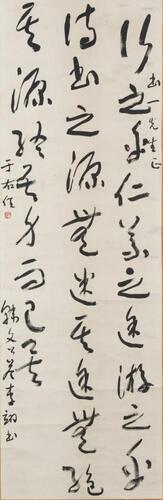 一先生正
行之乎仁義之途游之乎
詩書之源無迷其途無絕
其源終吾身而已矣
韓文公答李翊書
于右任